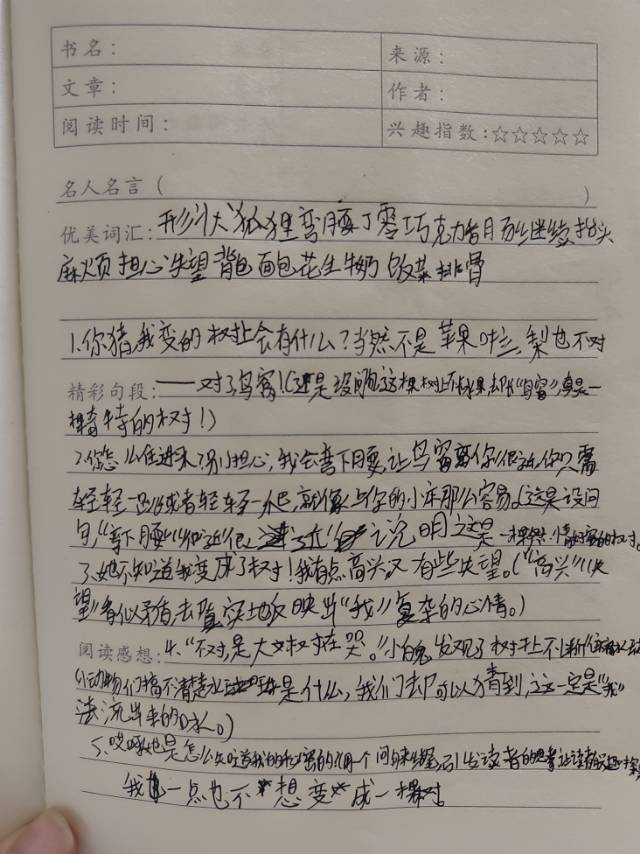 书名： 来源：
文章： 作者：
阅读时间： 兴趣指数：☆☆☆☆☆
名人名言（ ）
优美词汇：形状 狐狸 弯腰 丁零 巧克力 香 继续 抬头
麻烦 担心 失望 背包 面包 花生 牛奶 饭菜 排骨
1.你猜我变的树上会有什么？当然不是苹果 梨也不对
精彩句段：——对了鸟窝！（这是设问 这棵树上不 果却 "鸟窝" 真是一
棵奇特的树！）
2.你怎么住进来了别担心，我会弯下腰让鸟窝 你很近，你只需
轻轻一 或者轻轻一 就像 你的小床那么容易。（这是设问
句，"弯下腰" "很近" 说明这是一棵 的树。
3.她不知道我变成了树！我有点高兴，又有些失望。（"高兴" "失
望" 看似矛盾，却真实地反映出"我"复杂的心情。）
阅读感想：4."不对，是大树在哭。"小白兔 发现了树上不断
（小动物们搞不清楚 是什么，我们却可以猜到，这一定是"我"
流出来的口水。）
5.哎呀她是怎么知道我的秘密的 用一个问句来 引发读者的思考 让读者
我 一点也不想变成一棵树。